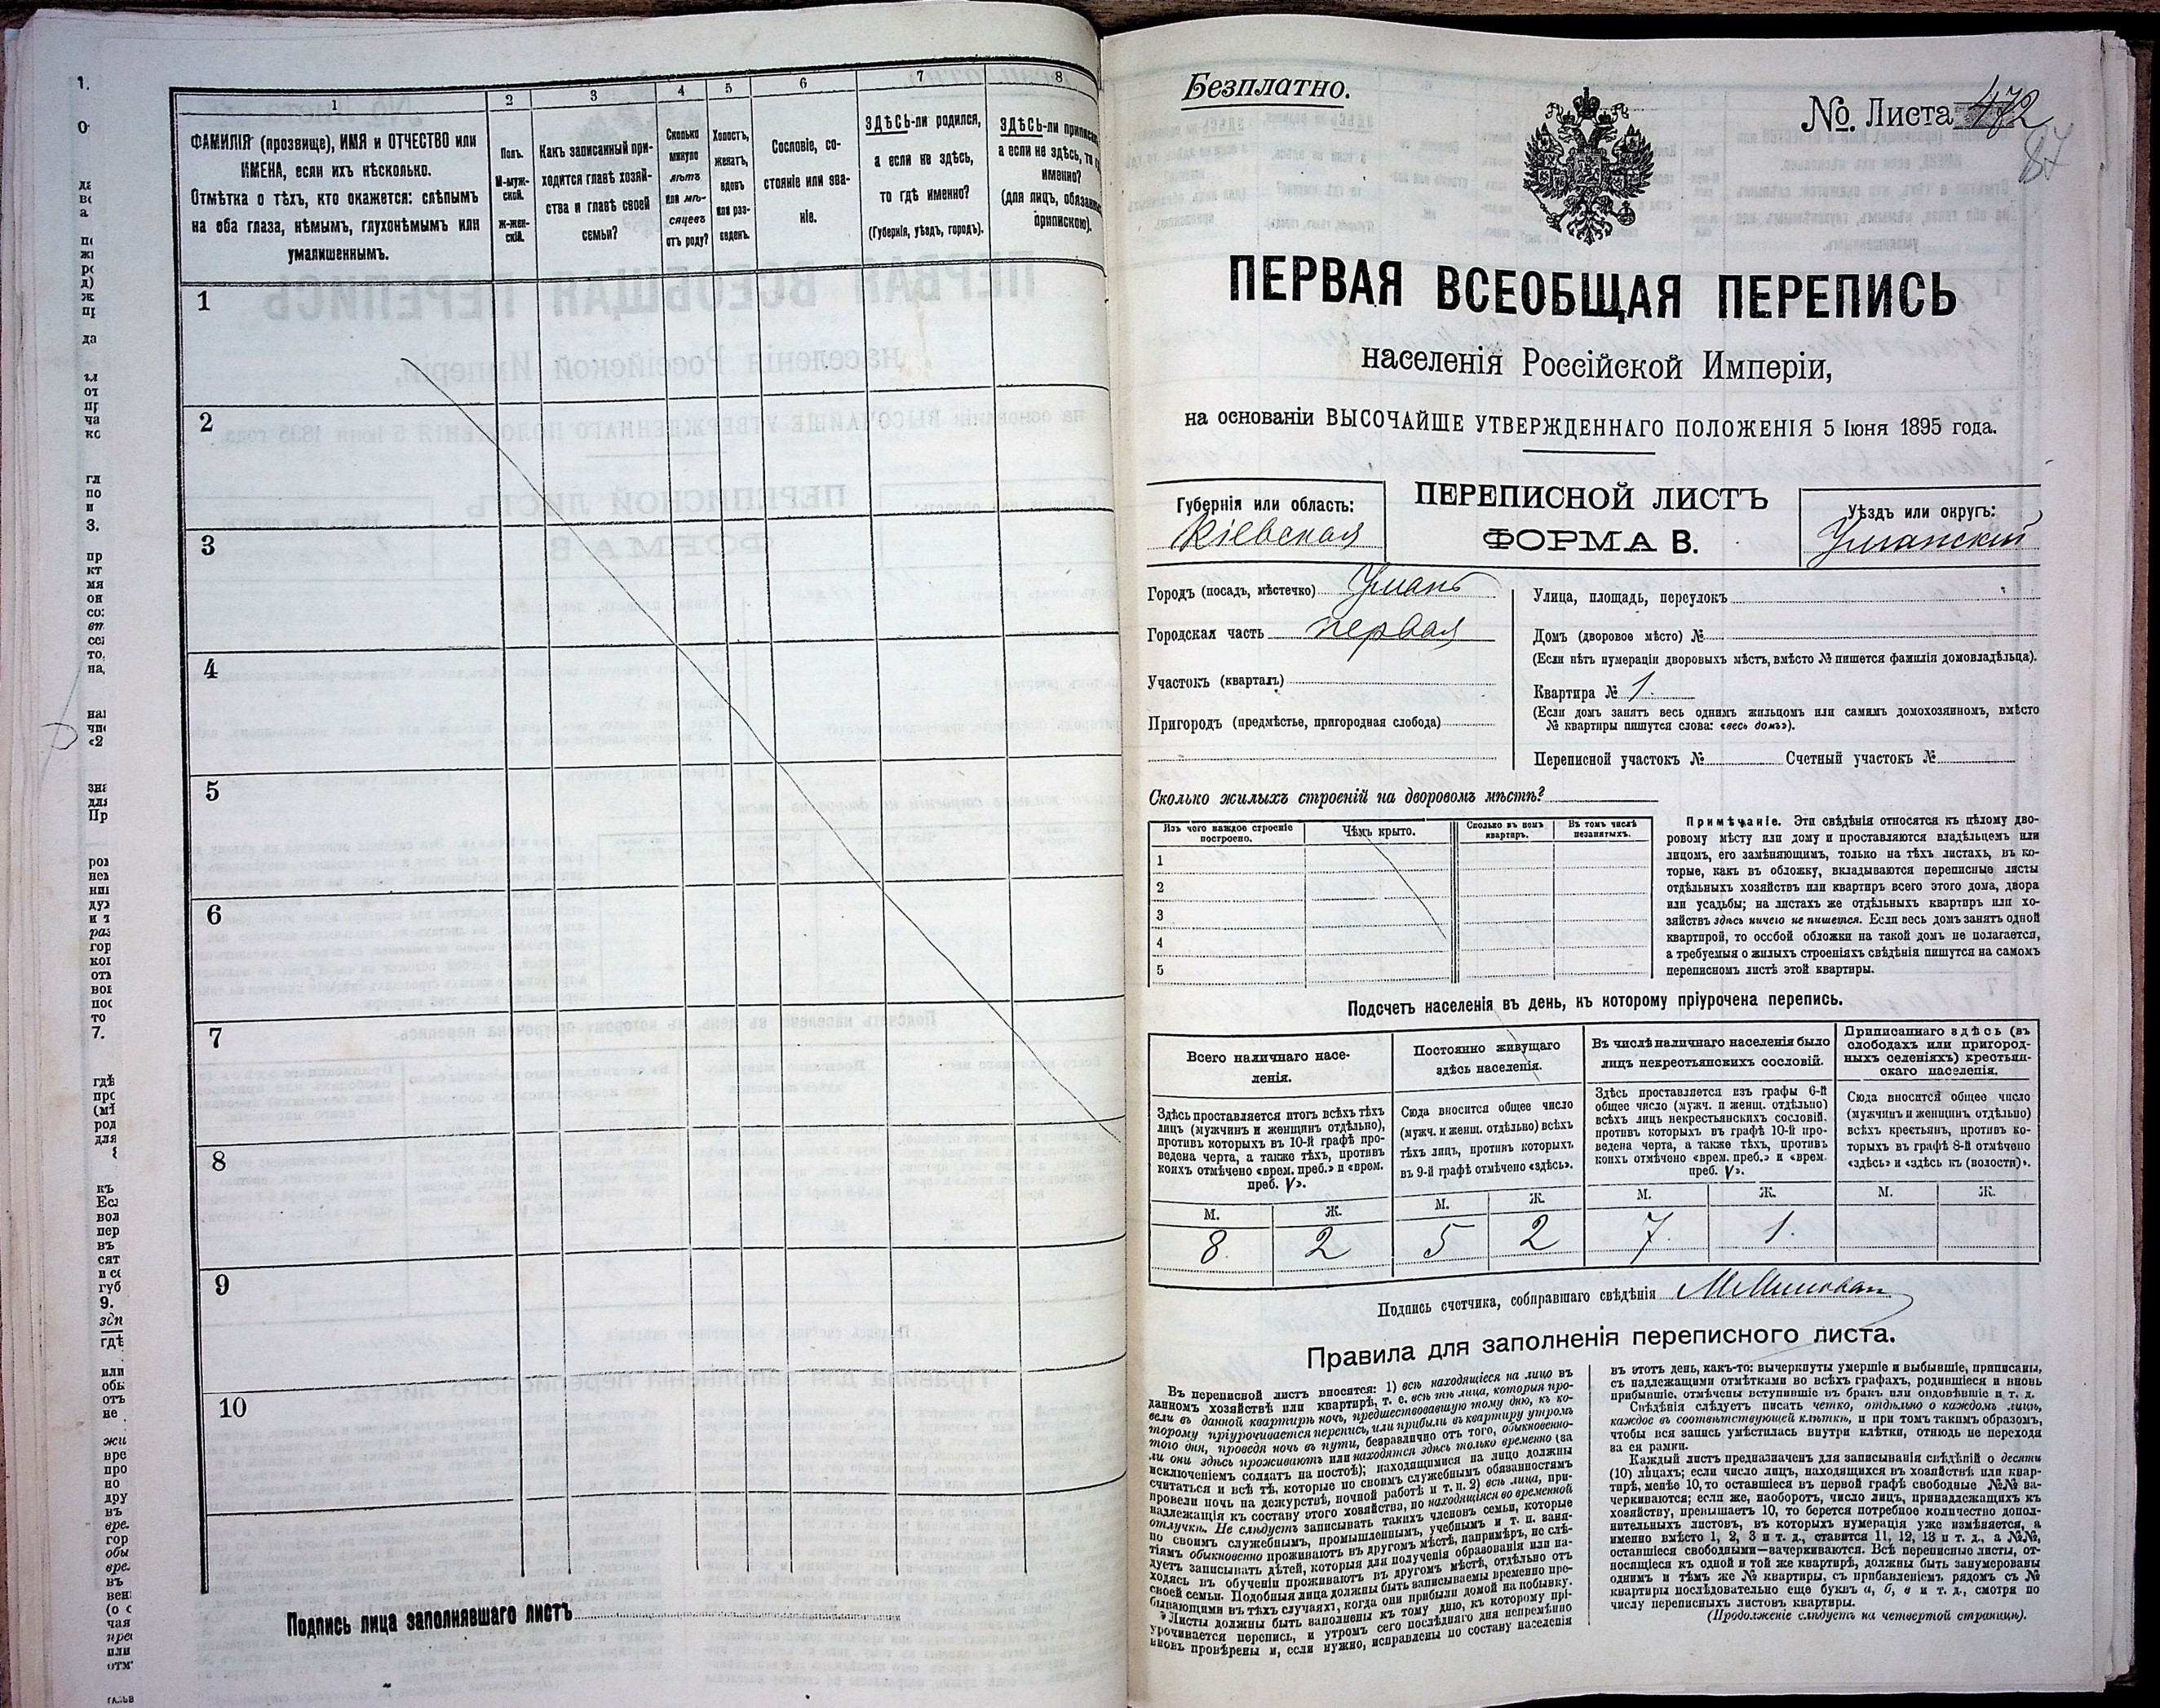 1
2
3
4
5
6
7
8
ФАМИЛІЯ (прозвище), ИМЯ и ОТЧЕСТВО или
ИМЕНА, если ихъ нѣсколько.
Отмѣтка о тѣхъ, кто окажется: слѣпымъ
на оба глаза, нѣмымъ, глухонѣмымъ или
умалишеннымъ.
Полъ.
М-муж-
ской.
Ж-жен-
скій.
Какъ записанный при-
ходится главѣ хозяй-
ства и главѣ своей
семьи?
Сколько
минуло
лѣтъ
или мѣ-
сяцевъ
отъ роду?
Холостъ,
женатъ,
вдовъ
или раз-
веденъ.
Сословіе, со-
стояніе или зва-
ніе.
ЗДѢСЬ-ли родился,
а если не здѣсь,
то гдѣ именно?
(Губернія, уѣздъ, городъ).
ЗДѢСЬ-ли
а если не здѣсь, то
именно?
(для лицъ,
припискою).
1
2
3
4
5
6
7
8
9
10
Подпись лица заполнявшаго листъ
Безплатно.
№. Листа 472
87
ПЕРВАЯ ВСЕОБЩАЯ ПЕРЕПИСЬ
населенія Россійской Имперіи,
на основаніи ВЫСОЧАЙШЕ УТВЕРЖДЕННАГО ПОЛОЖЕНІЯ 5 Іюня 1895 года.
Губернія или область:
Кіевская
ПЕРЕПИСНОЙ ЛИСТЪ
ФОРМА В.
Уѣздъ или округъ:
Уманскій
Городъ (посадъ, мѣстечко) Умань
Городская часть первая
Участокъ (кварталъ)
Пригородъ (предмѣстье, пригородная слобода)
Улица, площадь, переулокъ
Домъ (дворовое мѣсто) №
(Если нѣтъ нумераціи дворовыхъ мѣстъ, вмѣсто № пишется фамилія домовладѣльца).
Квартира № 1.
(Если домъ занятъ весь однимъ жильцомъ или самимъ домохозяиномъ, вмѣсто
№ квартиры пишутся слова: «весь домъ»).
Переписной участокъ № Счетный участокъ №
Сколько жилыхъ строеній на дворовомъ мѣстѣ?
Изъ чего каждое строеніе
построено.
Чѣмъ крыто.
Сколько въ немъ
квартиръ.
Въ томъ числѣ
незанятыхъ.
1
2
3
4
5
Примѣчаніе. Эти свѣдѣнія относятся къ цѣлому дво-
ровому мѣсту или дому и проставляются владѣльцемъ или
лицомъ, его замѣняющимъ, только на тѣхъ листахъ, въ ко-
торые, какъ въ обложку, вкладываются переписные листы
отдѣльныхъ хозяйствъ или квартиръ всего этого дома, двора
или усадьбы; на листахъ же отдѣльныхъ квартиръ или хо-
зяйствъ здѣсь ничего не пишется. Если весь домъ занятъ одной
квартирой, то особой обложки на такой домъ не полагается,
а требуемыя о жилыхъ строеніяхъ свѣдѣнія пишутся на самомъ
переписномъ листѣ этой квартиры.
Подсчетъ населенія въ день, къ которому пріурочена перепись.
Всего наличнаго насе-
ленія.
Постоянно живущаго
здѣсь населенія.
Въ числѣ наличнаго населенія было
лицъ некрестьянскихъ сословій.
Приписаннаго здѣсь (въ
слободахъ или пригород-
ныхъ селеніяхъ) крестьян-
скаго населенія.
Здѣсь проставляется итогъ всѣхъ тѣхъ
лицъ (мужчинъ и женщинъ отдѣльно),
противъ которыхъ въ 10-й графѣ про-
ведена черта, а также тѣхъ, противъ
коихъ отмѣчено «врем. преб.» и «врем.
преб. V».
Сюда вносится общее число
(мужч. и женщ. отдѣльно) всѣхъ
тѣхъ лицъ, противъ которыхъ
въ 9-й графѣ отмѣчено «здѣсь».
Здѣсь проставляется изъ графы 6-й
общее число (мужч. и женщ. отдѣльно)
всѣхъ лицъ некрестьянскихъ сословій,
противъ которыхъ въ графѣ 10-й про-
ведена черта, а также тѣхъ, противъ
коихъ отмѣчено «врем. преб.» и «врем.
преб. V».
Сюда вносится общее число
(мужчинъ и женщинъ отдѣльно)
всѣхъ крестьянъ, противъ ко-
торыхъ въ графѣ 8-й отмѣчено
«здѣсь» и «здѣсь къ (волости)».
М. Ж. М. Ж. М. Ж. М. Ж.
8. 2 5 2 7. 1.
Подпись счетчика, собиравшаго свѣдѣнія
Правила для заполненія переписного листа.
Въ переписной листъ вносятся: 1) всѣ находящіеся на лицо въ
данномъ хозяйствѣ или квартирѣ, т. е. всѣ тѣ лица, которыя про-
вели въ данной квартирѣ ночь, предшествовавшую тому дню, къ ко-
торому пріурочивается перепись, или прибыли въ квартиру утромъ
того дня, проведя ночь въ пути, безразлично отъ того, обыкновенно-
ли они здѣсь проживаютъ или находятся здѣсь только временно (за
исключеніемъ солдатъ на постоѣ); находящимися на лицо должны
считаться и всѣ тѣ, которые по своимъ служебнымъ обязанностямъ
провели ночь на дежурствѣ, ночной работѣ и т. п. 2) всѣ лица, при-
надлежащія къ составу этого хозяйства, но находящіяся во временной
отлучкѣ. Не слѣдуетъ записывать такихъ членовъ семьи, которые
по своимъ служебнымъ, промышленнымъ, учебнымъ и т. п. заня-
тіямъ обыкновенно проживаютъ въ другомъ мѣстѣ, напримѣръ, не слѣ-
дуетъ записывать дѣтей, которыя для полученія образованія или на-
ходясь въ обученіи проживаютъ въ другомъ мѣстѣ, отдѣльно отъ
своей семьи. Подобныя лица должны быть записываемы временно пре-
бывающими въ тѣхъ случаяхъ, когда они прибыли домой на побывку.
Листы должны быть заполнены къ тому дню, къ которому прі-
урочивается перепись, и утромъ сего послѣдняго дня непремѣнно
вновь провѣрены и, если нужно, исправлены по составу населенія
въ этотъ день, какъ-то: вычеркнуты умершіе и выбывшіе, приписаны,
съ надлежащими отмѣтками во всѣхъ графахъ, родившіеся и вновь
прибывшіе, отмѣчены вступившіе въ бракъ или овдовѣвшіе и т. д.
Свѣдѣнія слѣдуетъ писать четко, отдѣльно о каждомъ лицѣ,
каждое въ соотвѣтствующей клѣткѣ, и при томъ такимъ образомъ,
чтобы вся запись умѣстилась внутри клѣтки, отнюдь не переходя
за ея рамки.
Каждый листъ предназначенъ для записыванія свѣдѣній о десяти
(10) лицахъ; если число лицъ, находящихся въ хозяйствѣ или квар-
тирѣ, менѣе 10, то оставшіеся въ первой графѣ свободные №№ за-
черкиваются; если же, наоборотъ, число лицъ, принадлежащихъ къ
хозяйству, превышаетъ 10, то берется потребное количество допол-
нительныхъ листовъ, въ которыхъ нумерація уже измѣняется, а
именно вмѣсто 1, 2, 3 и т. д., ставится 11, 12, 13 и т. д., а №№,
оставшіеся свободными—зачеркиваются. Всѣ переписные листы, от-
носящіеся къ одной и той же квартирѣ, должны быть занумерованы
однимъ и тѣмъ же № квартиры, съ прибавленіемъ рядомъ съ №
квартиры послѣдовательно еще буквъ а, б, в и т. д., смотря по
числу переписныхъ листовъ квартиры.
(Продолженіе слѣдуетъ на четвертой страницѣ).